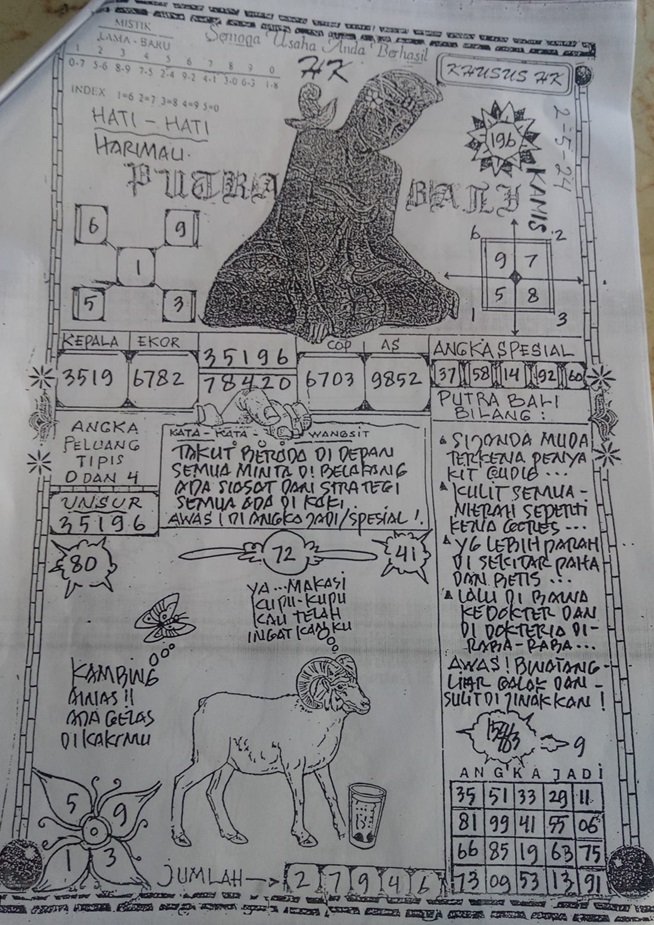 MISTIK
LAMA - BARU
1 2 3 4 5 6 7 8 9 0
0-7 5-6 8-9 7-5 2-4 9-2 4-1 3-0 6-3 1-8
INDEX 1=6 2=7 3=8 4=9 5=0
Semoga Usaha Anda Berhasil
HK
KHUSUS HK
HATI - HATI
HARIMAU
PUTRA BALI
196
2-5-24
KAMIS
6 9
1
5 3
6 2
9 7
5 8
1 3
KEPALA EKOR
3519 6782
35196
78420
COP AS
6703 9852
ANGKA SPESIAL
37 58 14 92 60
ANGKA
PELUANG
TIPIS
0 DAN 4
UNSUR
35196
KATA - KATA WANGSIT
TAKUT BERADA DI DEPAN
SEMUA MINTA DI BELAKANG
ADA SIASAT DAN STRATEGI
SEMUA ADA DI KAKI
AWAS! DI ANGKA JADI/SPESIAL!
PUTRA BALI
BILANG :
SI JANDA MUDA
TERKENA PENYA
KIT GUDIG ...
KULIT SEMUA -
MERAH SEPERTI
KENA GORES ...
YG LEBIH PARAH
DI SEKITAR PAHA
DAN BETIS ...
LALU DI BAWA
KE DOKTER DAN
DI DOKTERIA DI-
RABA-RABA...
AWAS! BINATANG
LIAR GALAK DAN -
SULIT DI JINAKKAN!
80
72
41
YA...MAKASI
KUPU-KUPU
KAU TELAH
INGATKAN KU
KAMBING
AWAS!!
ADA GELAS
DI KAKIMU
9
ANGKA JADI
35 51 33 29 11
81 99 41 55 06
66 85 19 63 75
73 09 53 13 91
5 9
1 3
JUMLAH 2 7 9 4 6